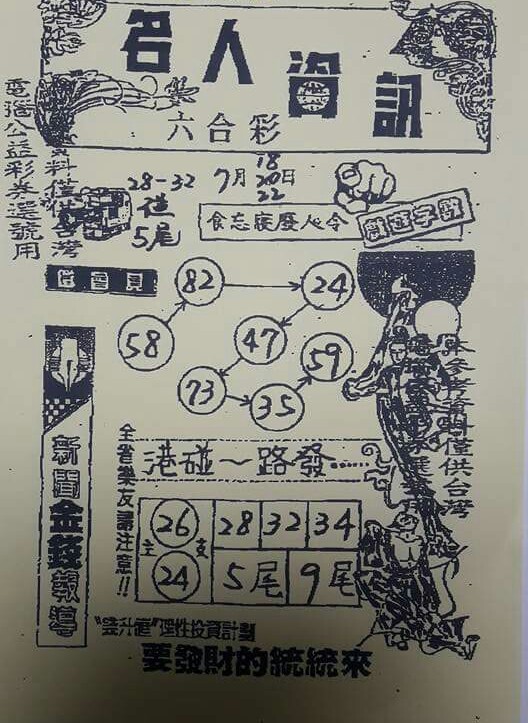 名人資訊
六合彩
電腦公益彩券選號用
資料僅供台灣
28-32
徍
5尾
18
7月20日
22
食忘寢廢人心令
會員
82
24
58
47
59
73
35
本參考資料僅供台灣
新聞金錢報導
全省樂友請注意!!
港碰~路發
26
28
32
34
主
支
24
5尾
9尾
理性投資計劃
要發財的統統來